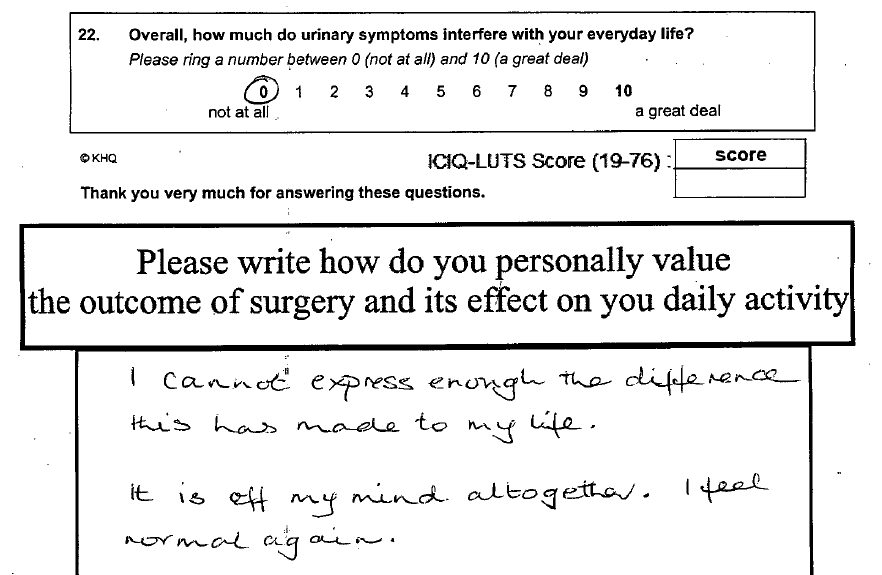 22. Overall, how much do urinary symptoms interfere with your everyday life?
Please ring a number between 0 (not at all) and 10 (a great deal)
0 1 2 3 4 5 6 7 8 9 10
not at all a great deal
© KHQ
ICIQ-LUTS Score (19-76) : score
Thank you very much for answering these questions.
Please write how do you personally value
the outcome of surgery and its effect on you daily activity
I cannot express enough the difference
this has made to my life.
It is off my mind altogether. I feel
normal again.